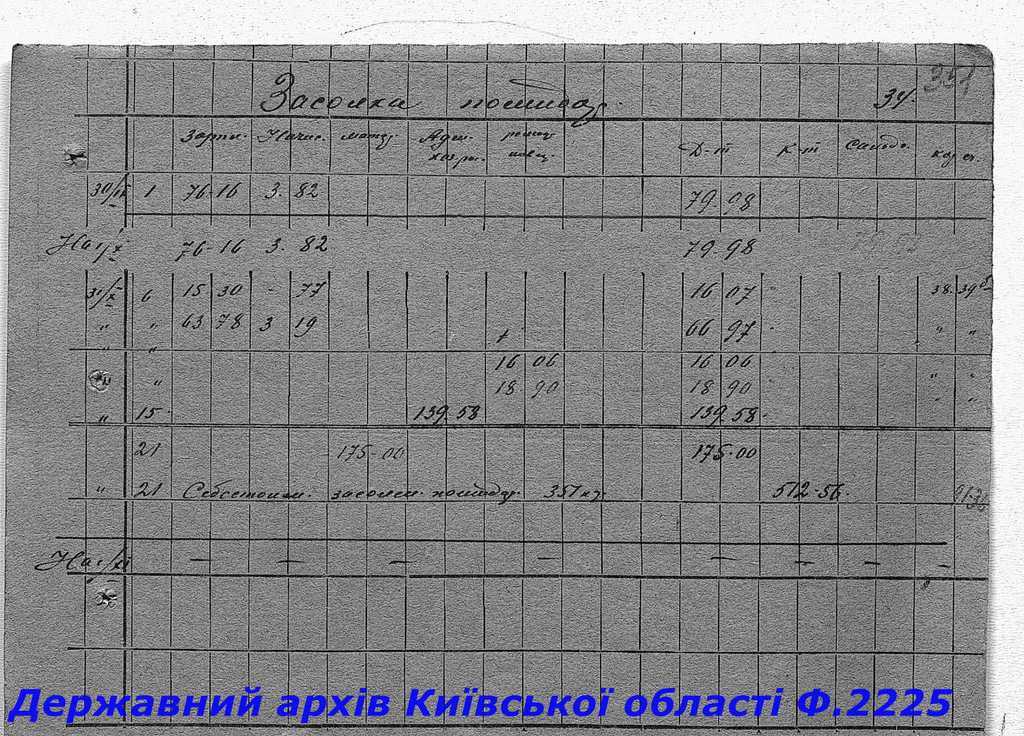 351
Засолка помидор. 34.
Зарпл. Начис. матер. Адм. хозр. Д-т К-т Сальдо.
30/IX 1 76-16 3. 82 79.98
На 1/X 76-16 3. 82 79-98
31/X 6 15 30 - 77 16 07 38.39
" " 63 78 3 19 66 97 " "
" "
16 06 16 06
" " 18.90 18 90
" 15 139.58 139.58
21 175-00 175-00
" 21 Себестоим. засолен. помидор. 351 кг. 512-56.
На 1/XI — — — — — — — —
Державний архів Київської області Ф.2225